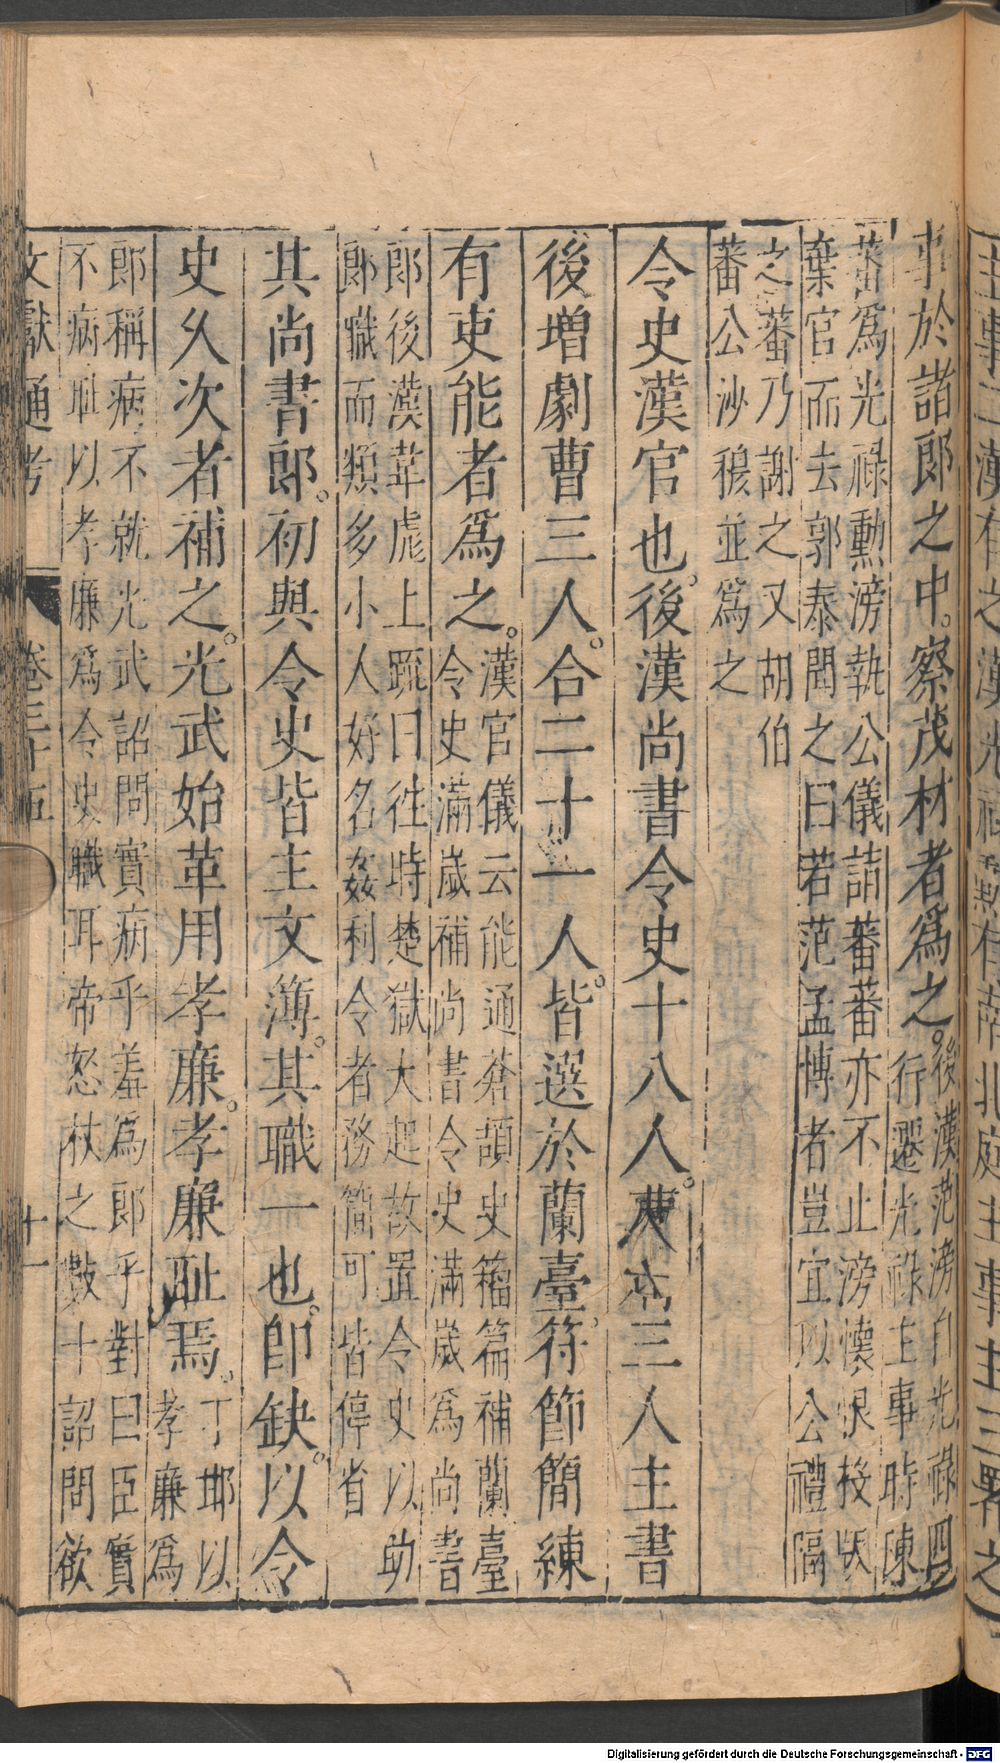 事於諸郎之中。察茂材者爲之。後漢范滂自光祿四
行遷光祿主事時陳
蕃爲光祿勳滂執公儀詣蕃蕃亦不止滂懷恨投版
棄官而去郭泰聞之曰若范孟博者豈宜以公禮隔
之蕃乃謝之又胡伯
蕃公沙穆並爲之
令史漢官也。後漢尚書令史十八人。曹有三人主書
後增劇曹三人。合二十一人。皆選於蘭臺。符節簡練
有吏能者爲之。漢官儀云能通蒼頡史籀篇補蘭臺
令史滿歲補尚書令史滿歲爲尚書
郎後漢韋彪上疏曰徃時楚獄大起故置令史以助
郎職而類多小人好名姦利令者務簡可皆停省
其尚書郎。初與令史皆主文簿。其職一也。郎缺。以令
史久次者補之。光武始革用孝廉。孝廉耻焉。丁邯以
孝廉爲
郎稱病不就光武詔問實病乎羞爲郎乎對曰臣實
不病耻以孝廉爲令史職耳帝怒杖之數十詔問欲
文獻通考
卷三十五
十一
Digitalisierung gefördert durch die Deutsche Forschungsgemeinschaft - DFG